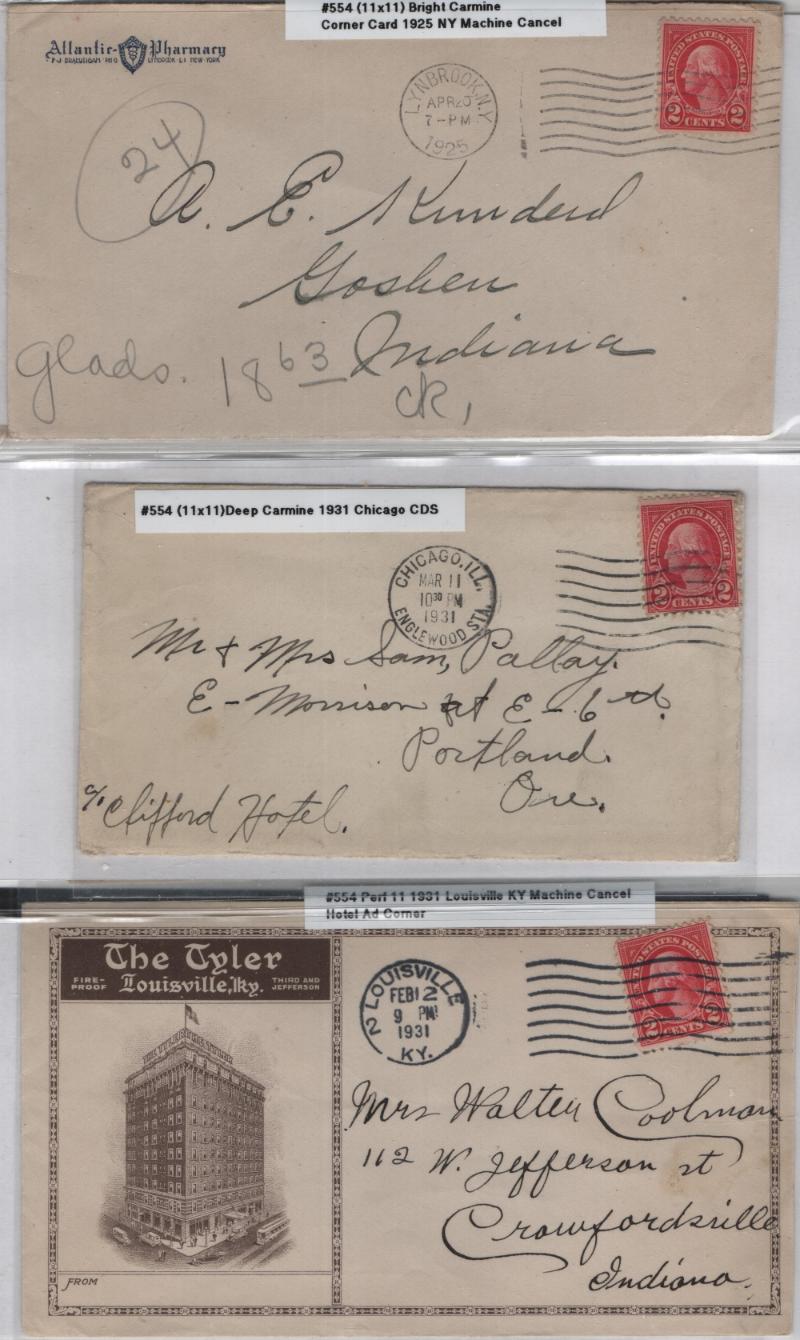 #554 (11x11) Bright Carmine
Corner Card 1925 NY Machine Cancel
Atlantic Pharmacy
LYNBROOK L.I. NEW YORK
LYNBROOK, N.Y.
APR 20
7-PM
1925
UNITED STATES POSTAGE
2 CENTS 2
24
A. E. Kunderd
Goshen
Indiana
Glads. 1863
CK,
#554 (11x11)Deep Carmine 1931 Chicago CDS
CHICAGO, ILL.
MAR 11
10 30 PM
1931
ENGLEWOOD STA.
UNITED STATES POSTAGE
2 CENTS 2
Mr & Mrs Sam, Pallay.
E - Morrison at E - 6 th.
Portland.
Ore.
c/o Clifford Hotel.
#554 Perf 11 1931 Louisville KY Machine Cancel
Hotel Ad Corner
The Tyler
FIRE-PROOF Louisville, Ky. THIRD AND JEFFERSON
LOUISVILLE 2
FEB 12
9 PM
1931
KY.
UNITED STATES POSTAGE
2 CENTS 2
Mrs Walter Coolman
112 W. Jefferson st
Crawfordsville
Indiana.
FROM